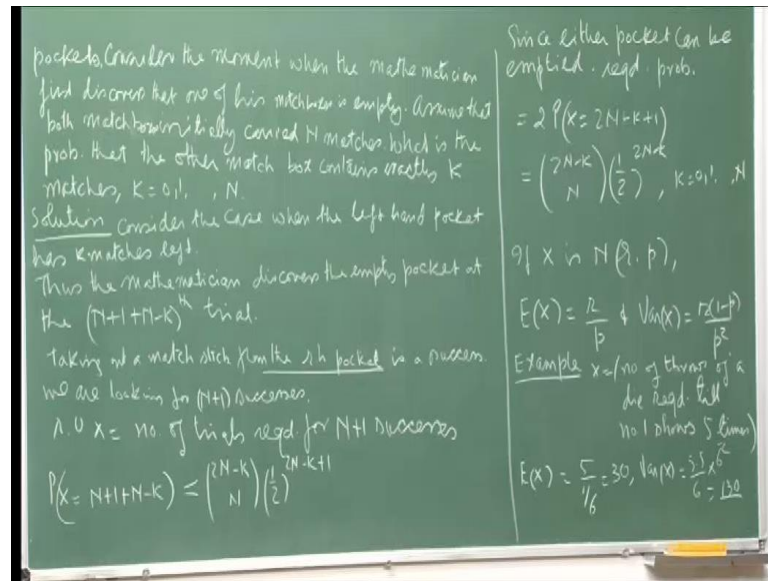 pockets. Consider the moment when the mathematician
first discovers that one of his matchboxes is empty. Assume that
both matchboxes initially contained N matches. What is the
prob. that the other match box contains exactly K
matches, K=0,1, , N.
Solution Consider the case when the left hand pocket
has K matches left.
Thus the mathematician discovers the empty pocket at
the (N+1+N-K)^th trial.
taking out a match stick from the rh pocket is a success.
we are looking for (N+1) successes.
X = no. of trials reqd. for N+1 successes
P(X = N+1+N-K) = (2N-K N) (1/2)^2N-K+1
Since either pocket can be
emptied. reqd. prob.
= 2P(X = 2N-K+1)
= (2N-K N) (1/2)^2N-K, K=0,1, , N
If X is N(r, p),
E(X) = r/p & Var(X) = r(1-p)/p²
Example X = (no of throws of a
die reqd. till
no 1 shows 5 times)
E(X) = 5/1/6 = 30, Var(X) =